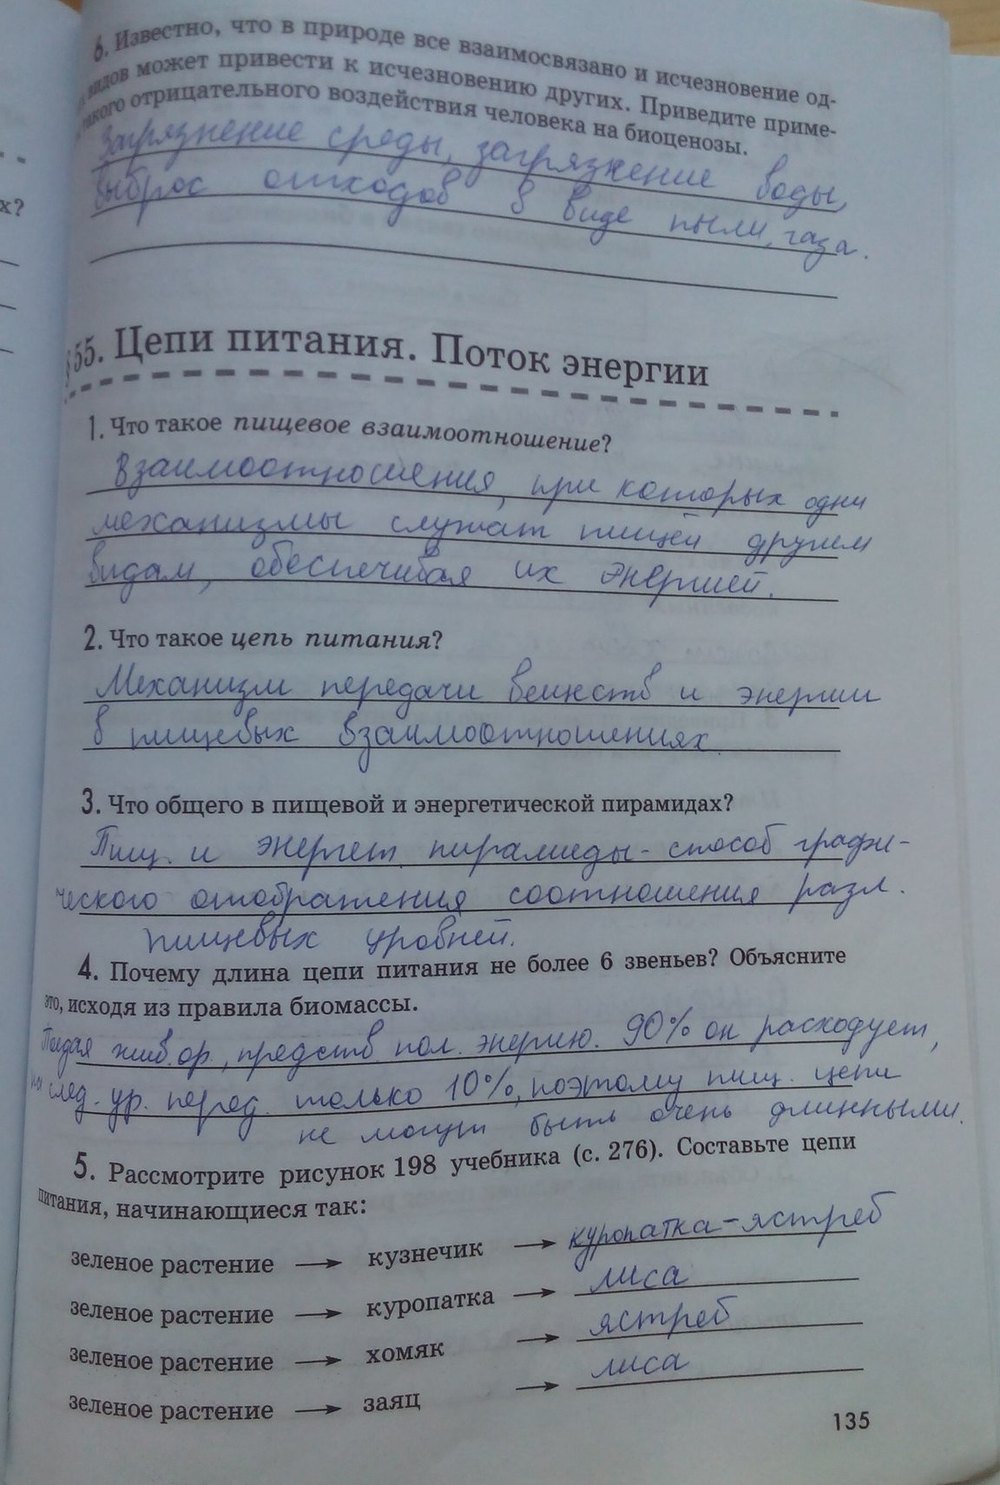 6. Известно, что в природе все взаимосвязано и исчезновение од-
видов может привести к исчезновению других. Приведите приме-
такого отрицательного воздействия человека на биоценозы.
Загрязнение среды, загрязнение воды,
выброс отходов в виде пыли, газа.
х?
§ 55. Цепи питания. Поток энергии
1. Что такое пищевое взаимоотношение?
Взаимоотношения, при которых одни
механизмы служат пищей другим
видам, обеспечивая их энергией.
2. Что такое цепь питания?
Механизм передачи веществ и энергии
в пищевых взаимоотношениях
3. Что общего в пищевой и энергетической пирамидах?
Пищ. и энергет. пирамиды - способ графи-
ческого отображения соотношения разл.
пищевых уровней.
4. Почему длина цепи питания не более 6 звеньев? Объясните
это, исходя из правила биомассы.
Поедая жив. ор., предств. пол. энергию. 90% он расходует,
на след. ур. перед. только 10%, поэтому пищ. цепи
не могут быть очень длинными.
5. Рассмотрите рисунок 198 учебника (с. 276). Составьте цепи
питания, начинающиеся так:
зеленое растение → кузнечик → куропатка - ястреб
зеленое растение → куропатка → лиса
зеленое растение → хомяк → ястреб
зеленое растение → заяц → лиса
135